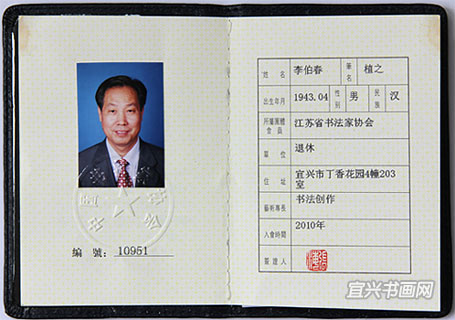 編號：10951
姓名 李伯春 筆名 植之
出生年月 1943.04 性别 男 民族 汉
所屬團體 江苏省书法家协会
單位 退休
住址 宜兴市丁香花园4幢203
室
藝術專長 书法创作
入會時間 2010年
簽證人
宜兴书画网